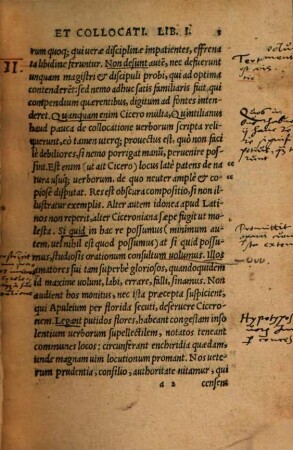 ET COLLOCATI. LIB. I.
rum quoq; qui veræ disciplinæ impatientes, effrena
ta libidine feruntur. Non desunt autē, nec defuerunt
unquam magistri & discipuli probi, qui ad optima
contenderēt: sed nemo adhuc satis familiaris fuit, qui
compendium quærentibus, digitum ad fontes inten
deret. Quanquam enim Cicero multa, Quintilianus
haud pauca de collocatione verborum scripta reli
querunt, eò tamen uterq; prouectus est. quò non faci
lè debiliores, si nemo porrigat manū, peruenire pos
sint. Est enim (ut ait Cicero) locus latè patens de na
tura usuq; verborum. de quo neuter ample & co
piosè disputat. Res est obscura compositio, si non il
lustratur exemplis. Alter autem idonea apud Latinos
non reperit, alter Ciceroniana sæpe fugit ut mo
lesta. Si quid in hac re possumus (minimum au
tem, uel nihil est quod possumus) at si quid possu
mus, studiosis orationum consultum uolumus. Illos
amatores sui tam superbè gloriosos, quandoquidem
id maxime uolunt, labi, errare, falli, sinamus. Non
audient hos monitus, nec ista præcepta suspicient,
qui Apuleium per florida secuti, deseruere Cicero-
nem. Legant putidos flores, habeant congestam inso
lentium uerborum supellectilem, notatos teneant
communes locos: circunferant enchiridia quædam,
unde magnam uim locutionum promant. Nos uete
rum prudentia, consilio, authoritate nitamur, qui
a 2 censem
II